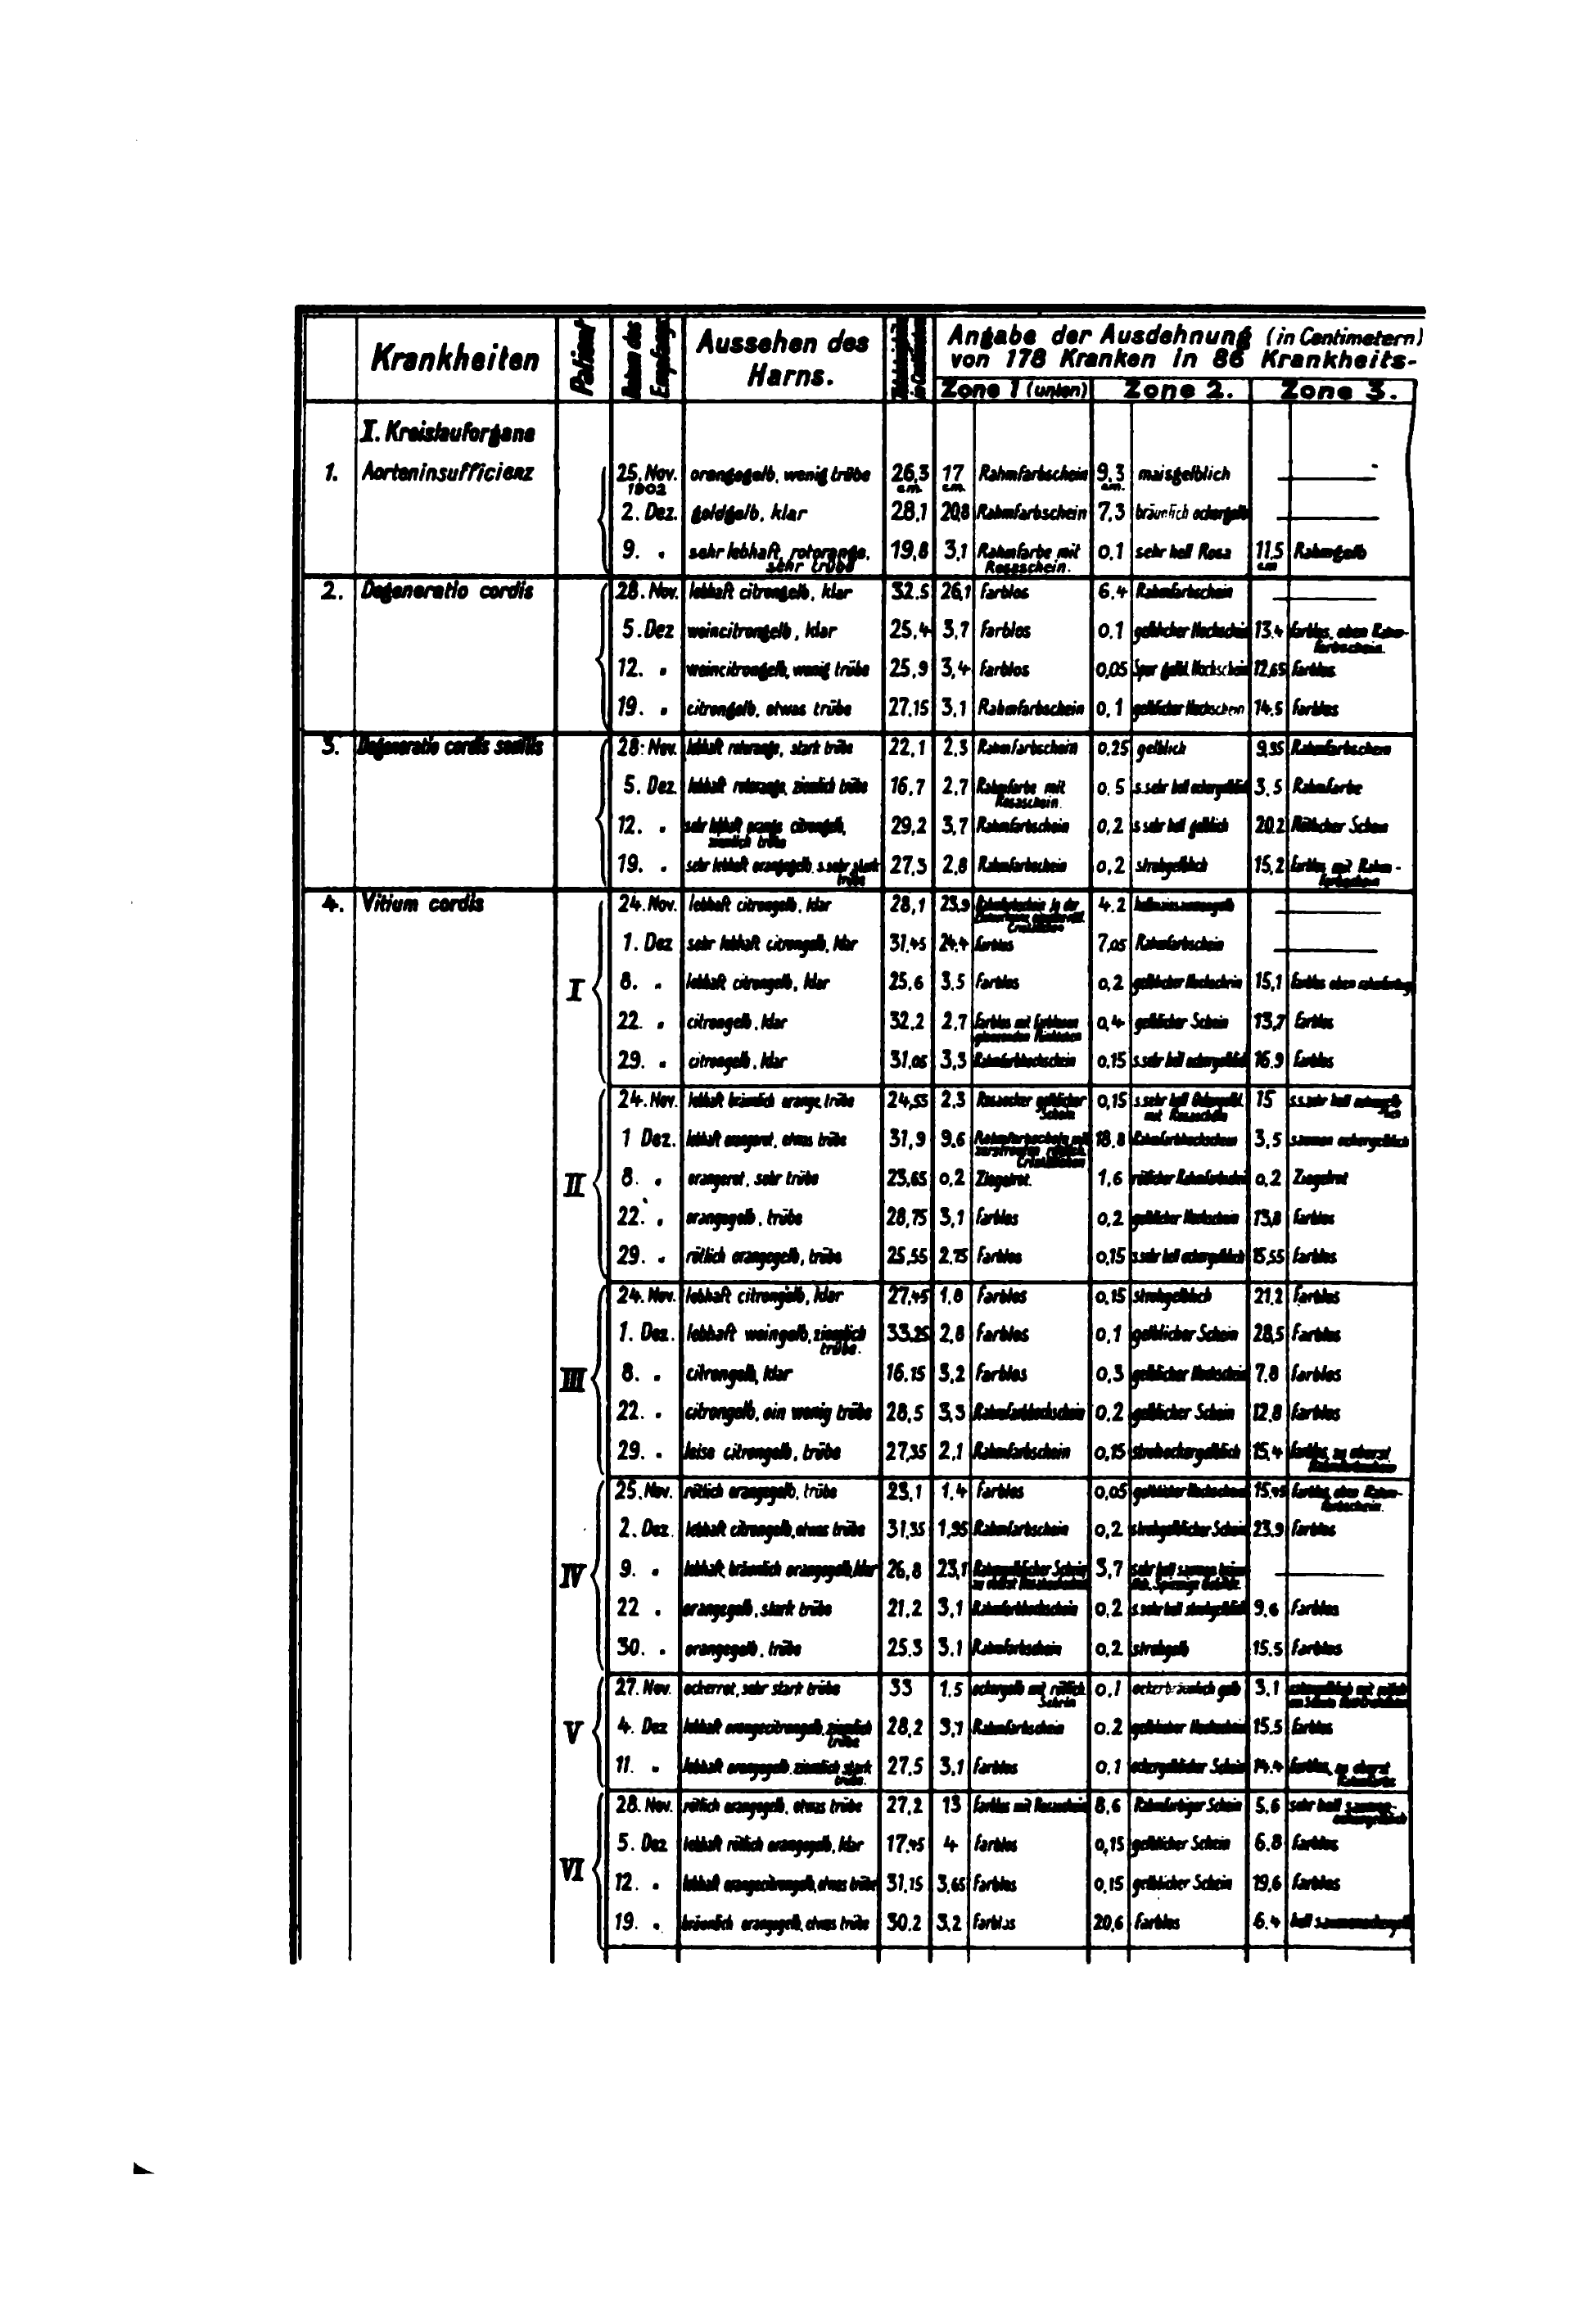 Krankheiten Patient Datum des Empfangs Aussehen des Harns. in Centimetern Angabe der Ausdehnung (in Centimetern)
von 178 Kranken in 86 Krankheits-
Zone 1 (unten) Zone 2. Zone 3.
I. Kreislauforgane
1. Aorteninsufficienz 25. Nov. orangegelb, wenig trübe 26,3 17 Rahmfarbschein 9,3 maisgelblich —
1902 c.m. c.m. c.m.
2. Dez. goldgelb, klar 28,1 20,8 Rahmfarbschein 7,3 bräunlich ockergelb —
9. " sehr lebhaft, rotorange, 19,8 3,1 Rahmfarbe mit 0,1 sehr hell Rosa 11,5 Rahmgelb
sehr trübe Rosaschein. c.m
2. Degeneratio cordis 28. Nov. lebhaft citrongelb, klar 32.5 26,1 farblos 6.4 Rahmfarbschein —
5. Dez weincitrongelb, klar 25,4 3,7 farblos 0.1 gelblicher Hochschein 13.4 farblos, oben Rahm-
farbschein.
12. " weincitrongelb, wenig trübe 25,9 3,4 farblos 0,05 Spur gelbl. Hochschein 12,65 farblos
19. " citrongelb, etwas trübe 27,15 3,1 Rahmfarbschein 0,1 gelblicher Hochschein 14,5 farblos
3. Degeneratio cordis senilis 28. Nov. lebhaft rotorange, stark trübe 22,1 2,3 Rahmfarbschein 0,25 gelblich 9,35 Rahmfarbschein
5. Dez lebhaft rotorange, ziemlich trübe 16,7 2,7 Rahmfarbe mit 0,5 s.sehr hell ockergelblich 3,5 Rahmfarbe
Rosaschein.
12. " sehr lebhaft orange citrongelb, 29,2 3,7 Rahmfarbschein 0,2 s sehr hell gelblich 20.2 Rötlicher Schein
ziemlich trübe
19. " sehr lebhaft orangegelb, s.sehr stark 27,3 2,8 Rahmfarbschein 0,2 strohgelblich 15,2 farblos, mit Rahm-
trübe farbschein
4. Vitium cordis 24. Nov. lebhaft citrongelb, klar 28,1 23,9 in der 4.2 —
Criställchen
1. Dez sehr lebhaft citrongelb, klar 31,45 24.4 farblos 7,05 Rahmfarbschein —
I 8. " lebhaft citrongelb, klar 25,6 3.5 farblos 0,2 gelblicher Hochschein 15,1 farblos oben
22. " citrongelb, klar 32,2 2,7 farblos mit farblosen 0,4 gelblicher Schein 13,7 farblos
glänzenden Pünktchen
29. " citrongelb, klar 31,05 3,3 Rahmfarbhochschein 0.15 s.sehr hell ockergelblich 16.9 farblos
24. Nov. lebhaft bräunlich orange, trübe 24,55 2.3 gelblicher 0,15 s.sehr hell 15 s.s.sehr hell
Schein mit Rosaschein
1 Dez. lebhaft orangerot, etwas trübe 31,9 9,6 Rahmfarbschein mit 18.8 Rahmfarbhochschein 3,5 saumon ockergelblich
zerstreuten rötlich.
Criställchen
II 8. " orangerot, sehr trübe 23,65 0,2 Ziegelrot. 1,6 rötlicher 0,2 Ziegelrot
22. " orangegelb, trübe 28,75 3,1 farblos 0,2 gelblicher Hochschein 13,8 farblos
29. " rötlich orangegelb, trübe 25,55 2,75 farblos 0,15 s.sehr hell ockergelblich 15,55 farblos
24. Nov. lebhaft citrongelb, klar 27,45 1,8 farblos 0,15 strohgelblich 21,2 farblos
1. Dez. lebhaft weingelb, ziemlich 33.25 2,8 farblos 0,1 gelblicher Schein 28,5 farblos
trübe.
III 8. " citrongelb, klar 16.15 3,2 farblos 0,3 gelblicher Hochschein 7.8 farblos
22. " citrongelb, ein wenig trübe 28,5 3,3 Rahmfarbhochschein 0.2 gelblicher Schein 12.8 farblos
29. " leise citrongelb, trübe 27,35 2,1 Rahmfarbschein 0,15 strohockergelblich 15,4 farblos, zu oberst
Rahmfarbschein
25. Nov. rötlich orangegelb, trübe 23,1 1,4 farblos 0,05 gelblicher Hochschein 15,45 farblos, oben Rahm-
farbschein.
2. Dez. lebhaft citrongelb, etwas trübe 31,35 1,95 Rahmfarbschein 0,2 strohgelblicher Schein 23.9 farblos
IV 9. " lebhaft, bräunlich orangegelb, klar 26,8 23,1 Schein 3,7 sehr hell saumon —
22. " orangegelb, stark trübe 21,2 3,1 Rahmfarbhochschein 0,2 s.sehr hell strohgelblich 9.6 farblos
30. " orangegelb, trübe 25.3 3.1 Rahmfarbschein 0.2 strohgelb 15.5 farblos
27. Nov. ockerrot, sehr stark trübe 33 1.5 ockergelb mit rötlich. 0,1 ockerbräunlich gelb 3,1 ockergelblich mit
Schein
V 4. Dez lebhaft orangecitrongelb, ziemlich 28,2 3,1 Rahmfarbschein 0.2 gelblicher Hochschein 15.5 farblos
trübe
11. " lebhaft orangegelb, ziemlich stark 27,5 3,1 farblos 0,1 ockergelblicher Schein 14.4 farblos, zu oberst
trübe. Rahmfarbe
28. Nov. rötlich orangegelb, etwas trübe 27,2 13 farblos mit Rosaschein 8,6 Rahmfarbiger Schein 5,6 sehr hell saumon-
ockergelblich
5. Dez lebhaft rötlich orangegelb, klar 17,45 4 farblos 0,15 gelblicher Schein 6.8 farblos
VI 12. " lebhaft orangecitrongelb, etwas trübe 31,15 3,65 farblos 0,15 gelblicher Schein 19,6 farblos
19. " bräunlich orangegelb, etwas trübe 30.2 3,2 farblos 20,6 farblos 6.4 hell saumonockergelb